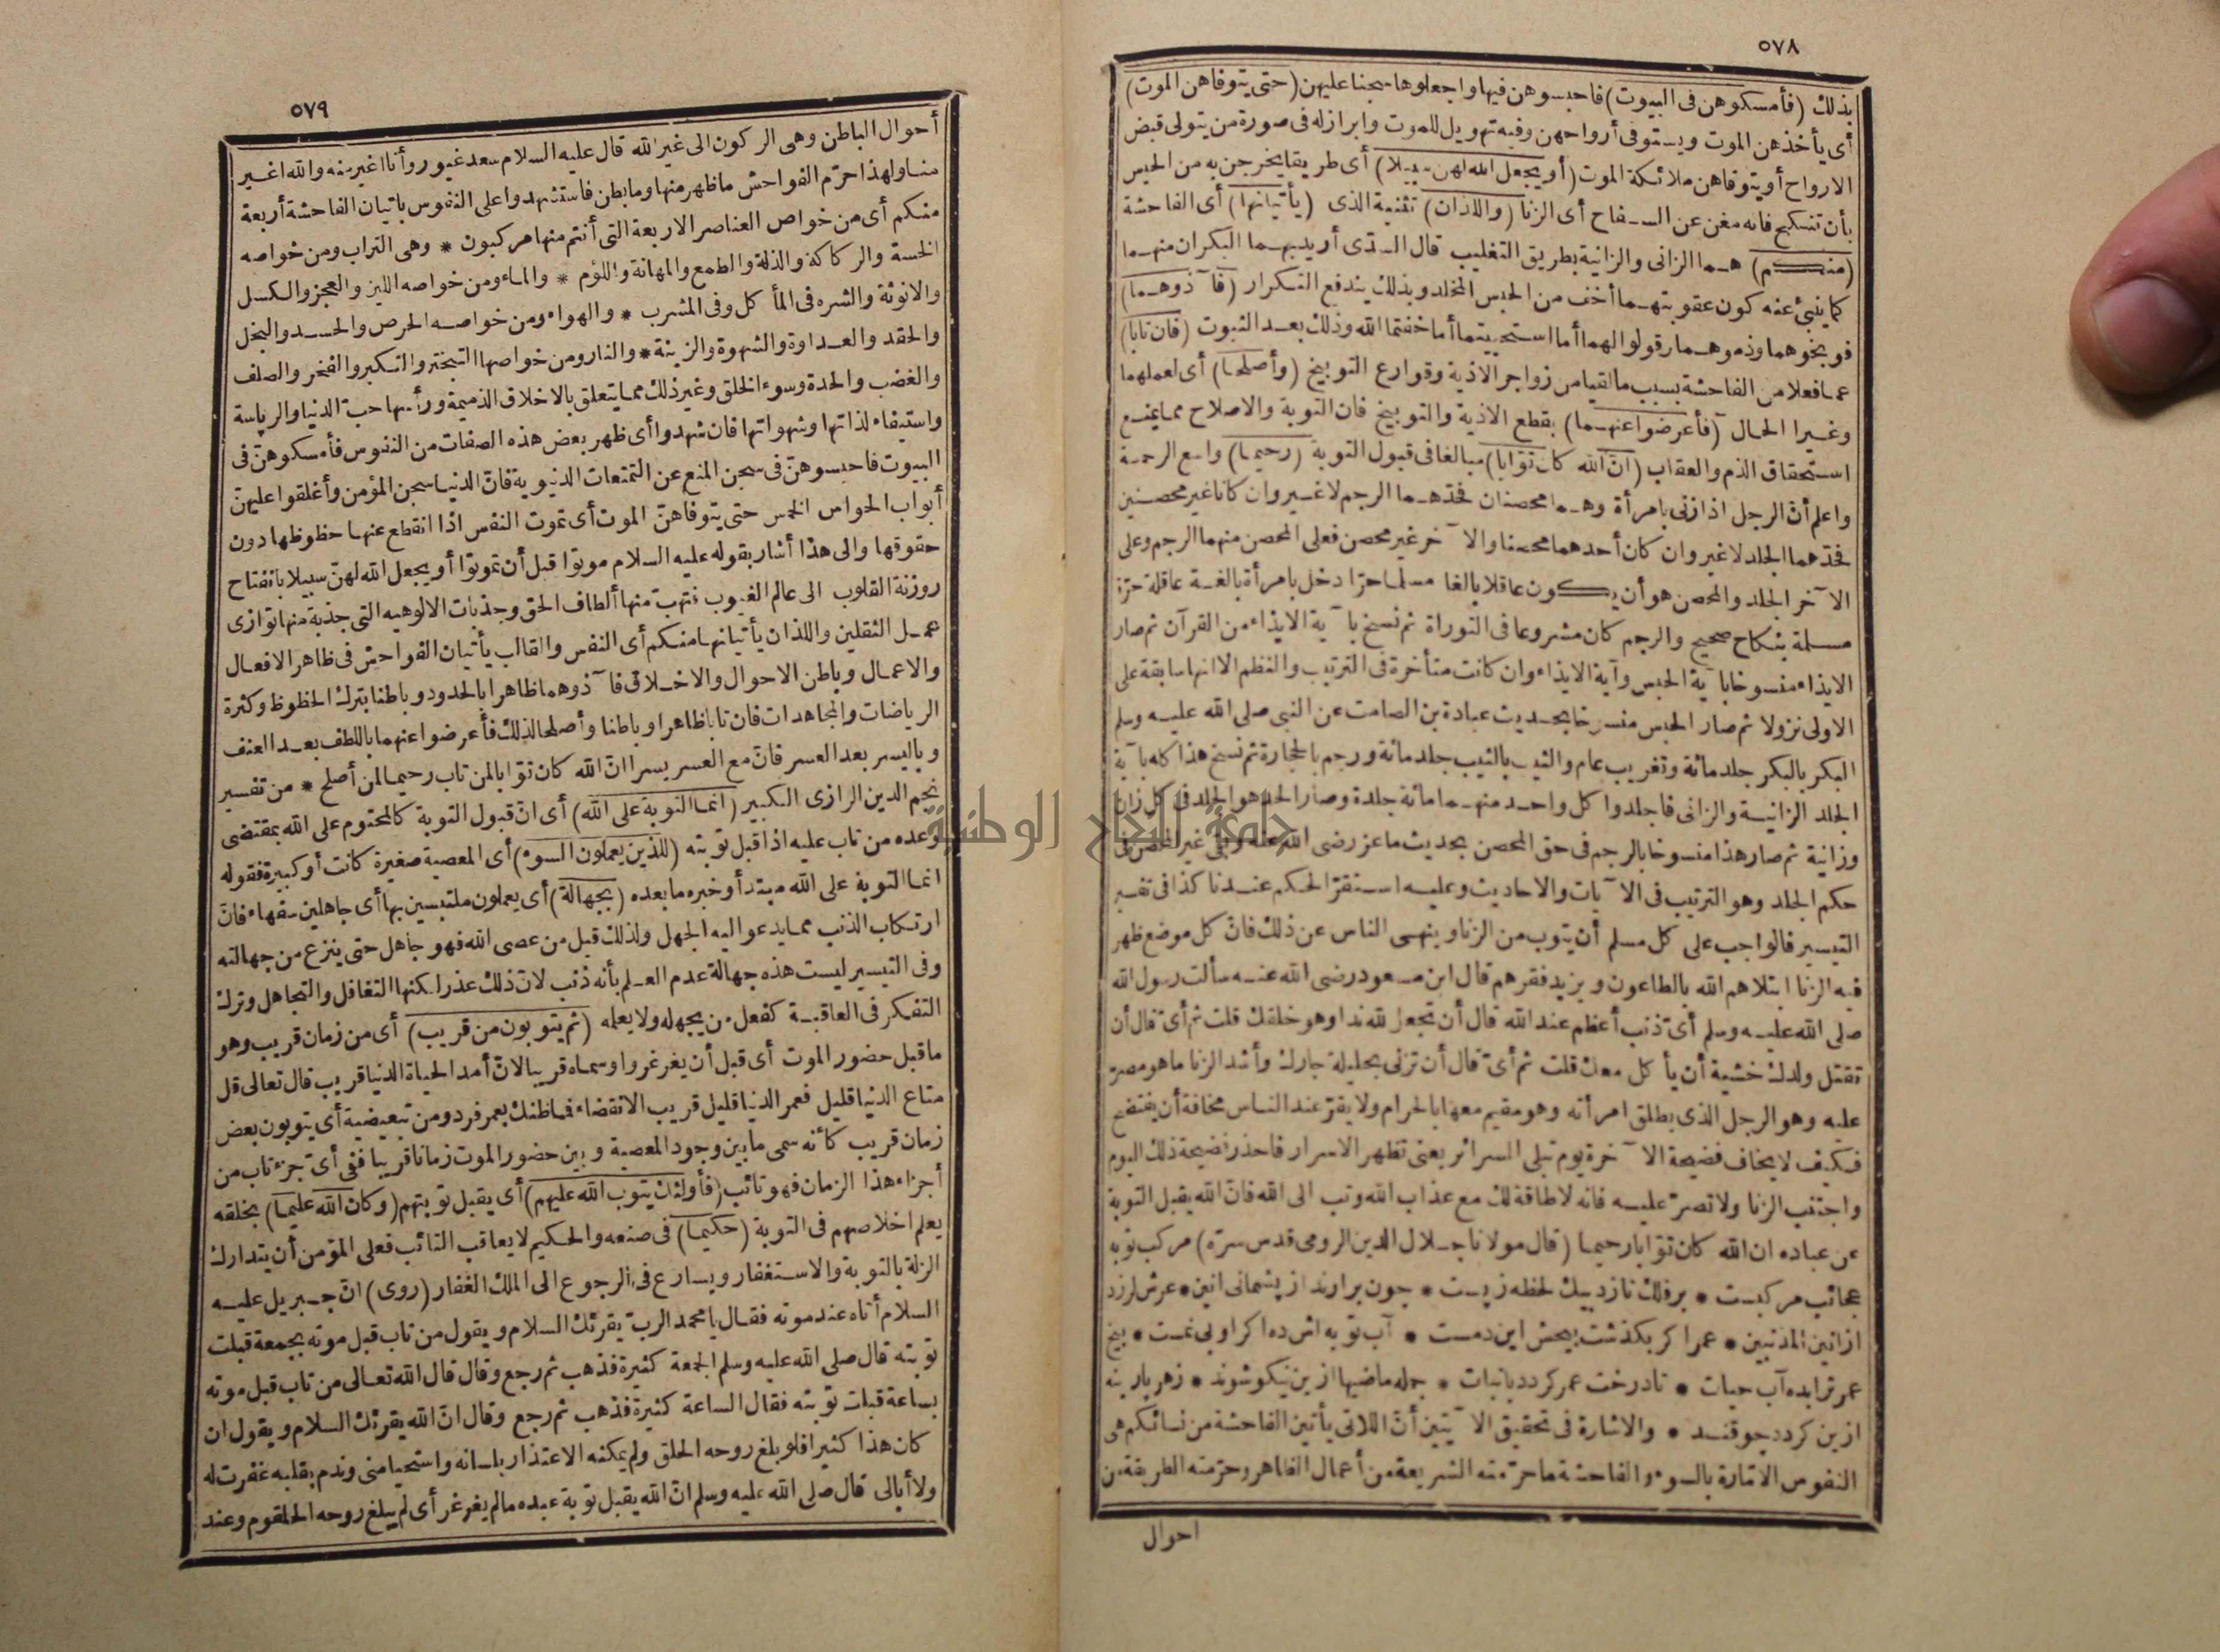 ٥٧٨
بذلك (فأمسكوهن فى البيوت) فاحبسوهن فيها واجعلوها سجنا عليهن (حتى يتوفاهن الموت)
أى يأخذهن الموت ويستوفى أرواحهن وفيه تهويل للموت وابرازله فى صورة من يتولى قبض
الارواح أو يتوفاهن ملائكة الموت (أو يجعل الله لهن سبيلا) أى طريقا يخرجن به من الحبس
بأن تنكح فانه مغن عن السفاح أى الزنا (واللذان) تثنية الذى (يأتيانها) أى الفاحشة
(منكم) هما الزانى والزانية بطريق التغليب قال السدى أريد بهما البكران منهما
كما ينبئ عنه كون عقوبتهما أخف من الحبس المخلد وبذلك يندفع التكرار (فآذوهما)
فوبخوهما وذموهما وقولوا لهما أما استحييتما أما خفتما الله وذلك بعد الثبوت (فان تابا)
عما فعلا من الفاحشة بسبب ما لقيا من زواجر الاذية وقوارع التوبيخ (وأصلحا) أى لعملهما
وغيرا الحال (فأعرضوا عنهما) بقطع الاذية والتوبيخ فان التوبة والاصلاح مما يمنع
استحقاق الذم والعقاب (ان الله كان توّابا) مبالغا فى قبول التوبة (رحيما) واسع الرحمة
واعلم أن الرجل اذا زنى بامرأة وهما محصنان فحدّهما الرجم لا غير وان كانا غير محصنين
فحدّهما الجلد لا غير وان كان أحدهما محصنا والآخر غير محصن فعلى المحصن منهما الرجم وعلى
الآخر الجلد والمحصن هو أن يكون عاقلا بالغا مسلما حرّا دخل بامرأة بالغة عاقلة حرّة
مسلمة بنكاح صحيح والرجم كان مشروعا فى التوراة ثم نسخ بآية الايذاء من القرآن ثم صار
الايذاء منسوخا بآية الحبس وآية الايذاء وان كانت متأخرة فى الترتيب والنظم الا انها سابقة على
الاولى نزولا ثم صار الحبس منسوخا بحديث عبادة بن الصامت عن النبى صلى الله عليه وسلم
البكر بالبكر جلد مائة وتغريب عام والثيب بالثيب جلد مائة ورجم بالحجارة ثم نسخ هذا كله بآية
الجلد الزانية والزانى فاجلدوا كل واحد منهما مائة جلدة وصار الحد هو الجلد فى كل زان
وزانية ثم صار هذا منسوخا بالرجم فى حق المحصن بحديث ماعز رضى الله عنه وبقى غير المحصن فى
حكم الجلد وهو الترتيب فى الآيات والاحاديث وعليه استقرّ الحكم عندنا كذا فى تفسير
التيسير فالواجب على كل مسلم أن يتوب من الزنا وينهى الناس عن ذلك فانّ كل موضع ظهر
فيه الزنا ابتلاهم الله بالطاعون ويزيد فقرهم قال ابن مسعود رضى الله عنه سألت رسول الله
صلى الله عليه وسلم أىّ ذنب أعظم عند الله قال أن تجعل لله ندا وهو خلقك قلت ثم أىّ قال أن
تقتل ولدك خشية أن يأكل معك قلت ثم أىّ قال أن تزنى بحليلة جارك وأشد الزنا ما هو مصرّ
عليه وهو الرجل الذى يطلق امرأته وهو مقيم معها بالحرام ولا يقرّ عند الناس مخافة أن يفتضح
فكيف لا يخاف فضيحة الآخرة يوم تبلى السرائر يعنى تظهر الاسرار فاحذر فضيحة ذلك اليوم
واجتنب الزنا ولا تصرّ عليه فانه لا طاقة لك مع عذاب الله وتب الى الله فانّ الله يقبل التوبة
عن عباده ان الله كان توّابا رحيما (قال مولانا جلال الدين الرومى قدس سرّه) مركب توبه
عجائب مركبست * بر فلك تازد بيك لحظه زپست * چون برارند از پشمانى انين * عرش لرزد
از انين المذنبين * عمر اكر بكذشت بيخش اين دمست * آب توبه اش ده اكر او بى نمست * بيخ
عمرت را بده آب حيات * تا درخت عمر كردد با نبات * جمله ماضيها ازين نيكو شوند * زهر پارينه
ازين كردد چو قند * والاشارة فى تحقيق الآيتين أنّ اللاتى يأتين الفاحشة من نسائكم هى
النفوس الامّارة بالسوء والفاحشة ما حرّمته الشريعة من أعمال الظاهر وحرّمته الطريقة من
احوال
٥٧٩
أحوال الباطن وهى الركون الى غير الله قال عليه السلام سعد غيور وأنا اغير منه والله اغير
منا ولهذا حرّم الفواحش ما ظهر منها وما بطن فاستشهدوا على النفوس باتيان الفاحشة أربعة
منكم أى من خواص العناصر الاربعة التى أنتم منها مركبون * وهى التراب ومن خواصه
الخسة والركاكة والذلة والطمع والمهانة واللؤم * والماء ومن خواصه اللين والعجز والكسل
والانوثة والشره فى المأكل وفى المشرب * والهواء ومن خواصه الحرص والحسد والبخل
والحقد والعداوة والشهوة والزينة * والنار ومن خواصها التبختر والتكبر والفخر والصلف
والغضب والحدة وسوء الخلق وغير ذلك مما يتعلق بالاخلاق الذميمة ورأسها حب الدنيا والرياسة
واستيفاء لذاتها وشهواتها فان شهدوا أى ظهر بعض هذه الصفات من النفوس فأمسكوهنّ فى
البيوت فاحبسوهنّ فى سجن المنع عن التمتعات الدنيوية فانّ الدنيا سجن المؤمن وأغلقوا عليهنّ
أبواب الحواس الخمس حتى يتوفاهنّ الموت أى تموت النفس اذا انقطع عنها حظوظها دون
حقوقها والى هذا أشار بقوله عليه السلام موتوا قبل أن تموتوا أو يجعل الله لهنّ سبيلا بانفتاح
روزنة القلوب الى عالم الغيوب فتهبّ منها ألطاف الحق وجذبات الالوهيه التى جذبة منها توازى
عمل الثقلين واللذان يأتيانها منكم أى النفس والقالب يأتيان الفواحش فى ظاهر الافعال
والاعمال وباطن الاحوال والاخلاق فآذوهما ظاهرا بالحدود وباطنا بترك الحظوظ وكثرة
الرياضات والمجاهدات فان تابا ظاهرا وباطنا وأصلحا لذلك فأعرضوا عنهما باللطف بعد العنف
وباليسر بعد العسر فانّ مع العسر يسرا انّ الله كان توّابا لمن تاب رحيما لمن أصلح * من تفسير
نجم الدين الرازى الكبير (انما التوبة على الله) أى انّ قبول التوبة كالمحتوم على الله بمقتضى
وعده من تاب عليه اذا قبل توبته (للذين يعملون السوء) أى المعصية صغيرة كانت أو كبيرة فقوله
انما التوبة على الله مبتدأ وخبره ما بعده (بجهالة) أى يعملون ملتبسين بها أى جاهلين سفهاء فانّ
ارتكاب الذنب مما يدعو اليه الجهل ولذلك قيل من عصى الله فهو جاهل حتى ينزع من جهالته
وفى التيسير ليست هذه جهالة عدم العلم بأنه ذنب لانّ ذلك عذر لكنها التغافل والتجاهل وترك
التفكر فى العاقبة كفعل من يجهله ولا يعلمه (ثم يتوبون من قريب) أى من زمان قريب وهو
ما قبل حضور الموت أى قبل أن يغرغروا وسماه قريبا لانّ أمد الحياة الدنيا قريب قال تعالى قل
متاع الدنيا قليل فعمر الدنيا قليل قريب الانقضاء فما ظنك بعمر فرد ومن تبعيضية أى يتوبون بعض
زمان قريب كأنه سمى ما بين وجود المعصية وبين حضور الموت زمانا قريبا ففى أىّ جزء تاب من
أجزاء هذا الزمان فهو تائب (فأولئك يتوب الله عليهم) أى يقبل توبتهم (وكان الله عليما) بخلقه
يعلم اخلاصهم فى التوبة (حكيما) فى صنعه والحكيم لا يعاقب التائب فعلى المؤمن أن يتدارك
الزلة بالتوبة والاستغفار ويسارع فى الرجوع الى الملك الغفار (روى) انّ جبريل عليه
السلام أتاه عند موته فقال يا محمد الربّ يقرئك السلام ويقول من تاب قبل موته بجمعة قبلت
توبته قال صلى الله عليه وسلم الجمعة كثيرة فذهب ثم رجع وقال قال الله تعالى من تاب قبل موته
بساعة قبلت توبته فقال الساعة كثيرة فذهب ثم رجع وقال انّ الله يقرئك السلام ويقول ان
كان هذا كثيرا فلو بلغ روحه الحلق ولم يمكنه الاعتذار بلسانه واستحيا منى وندم بقلبه غفرت له
ولا أبالى قال صلى الله عليه وسلم انّ الله يقبل توبة عبده ما لم يغرغر أى لم يبلغ روحه الحلقوم وعند
جامعة النجاح الوطنية